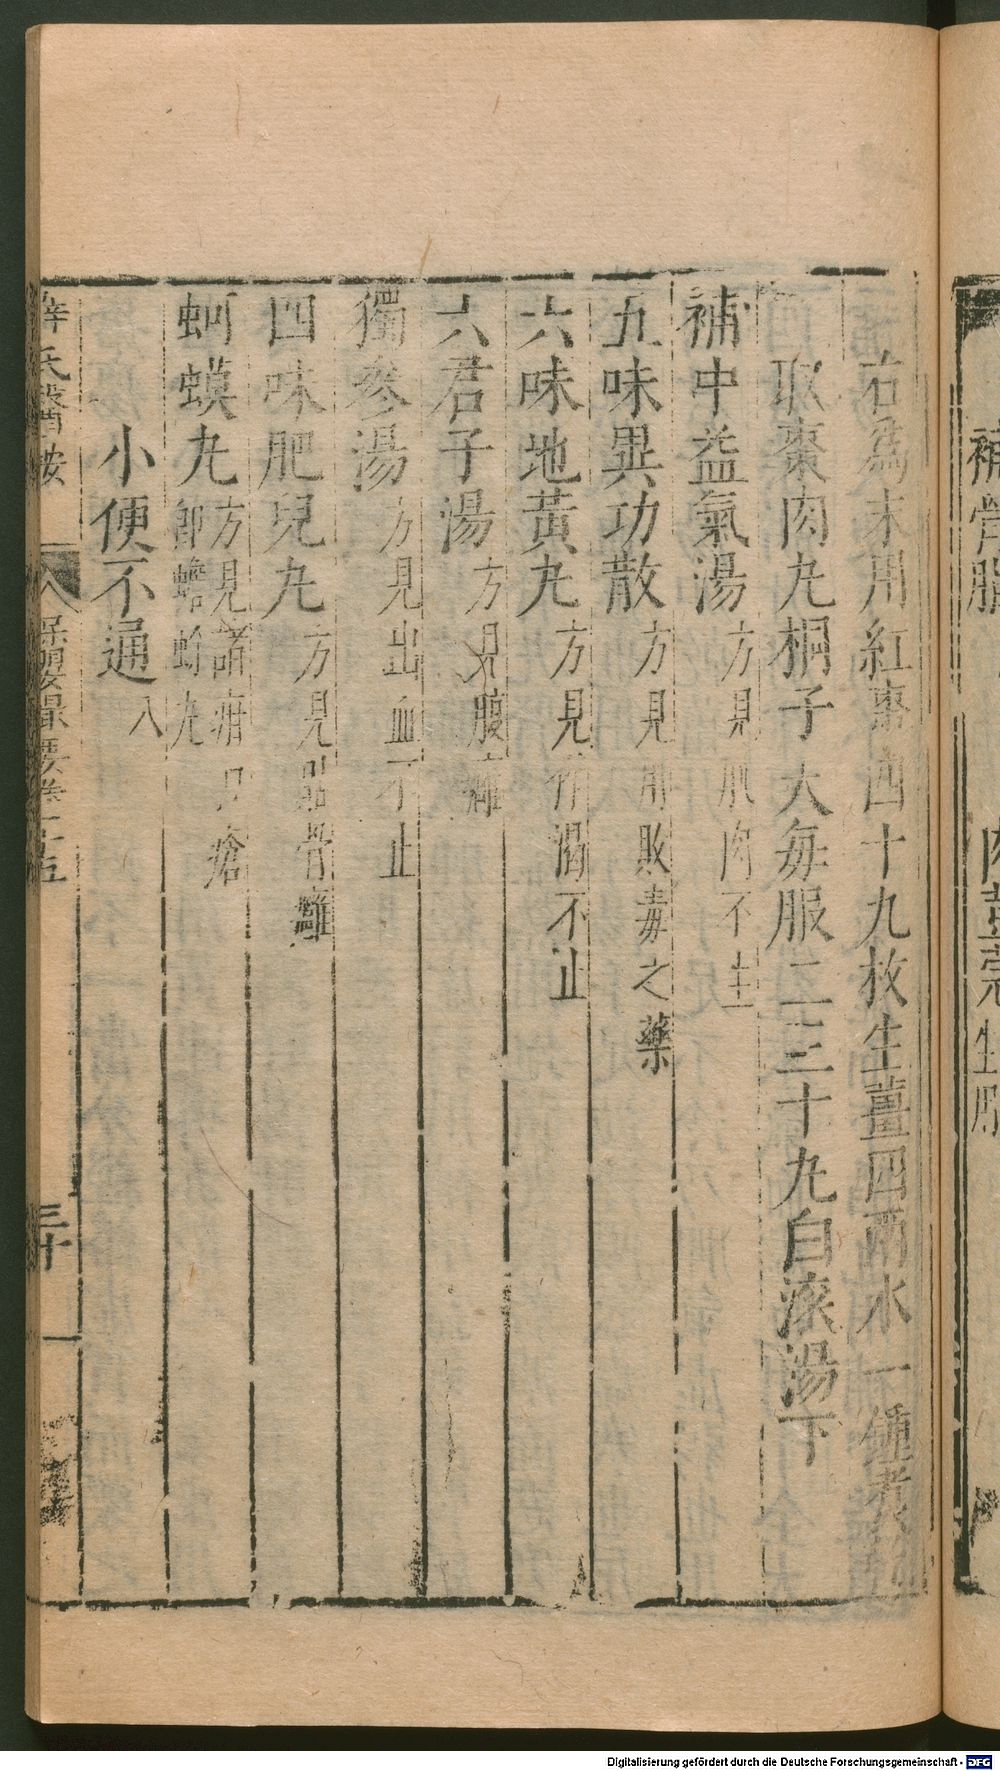 右為末用紅棗四十九枚生薑四兩水一鍾煮
取棗肉丸桐子大每服二三十丸白滾湯下
補中益氣湯方見肌肉不生
五味異功散方見用敗毒之藥
六味地黃丸方見作渴不止
六君子湯方見腹癰
獨參湯方見出血不止
四味肥兒丸方見貼骨癰
蚵蟆丸方見諸疳口瘡
即蟾蛤丸
小便不通八
薛氏醫按
八
保嬰撮要卷十五
三十
補骨脂
肉荳蔻生用
Digitalisierung gefördert durch die Deutsche Forschungsgemeinschaft - DFG